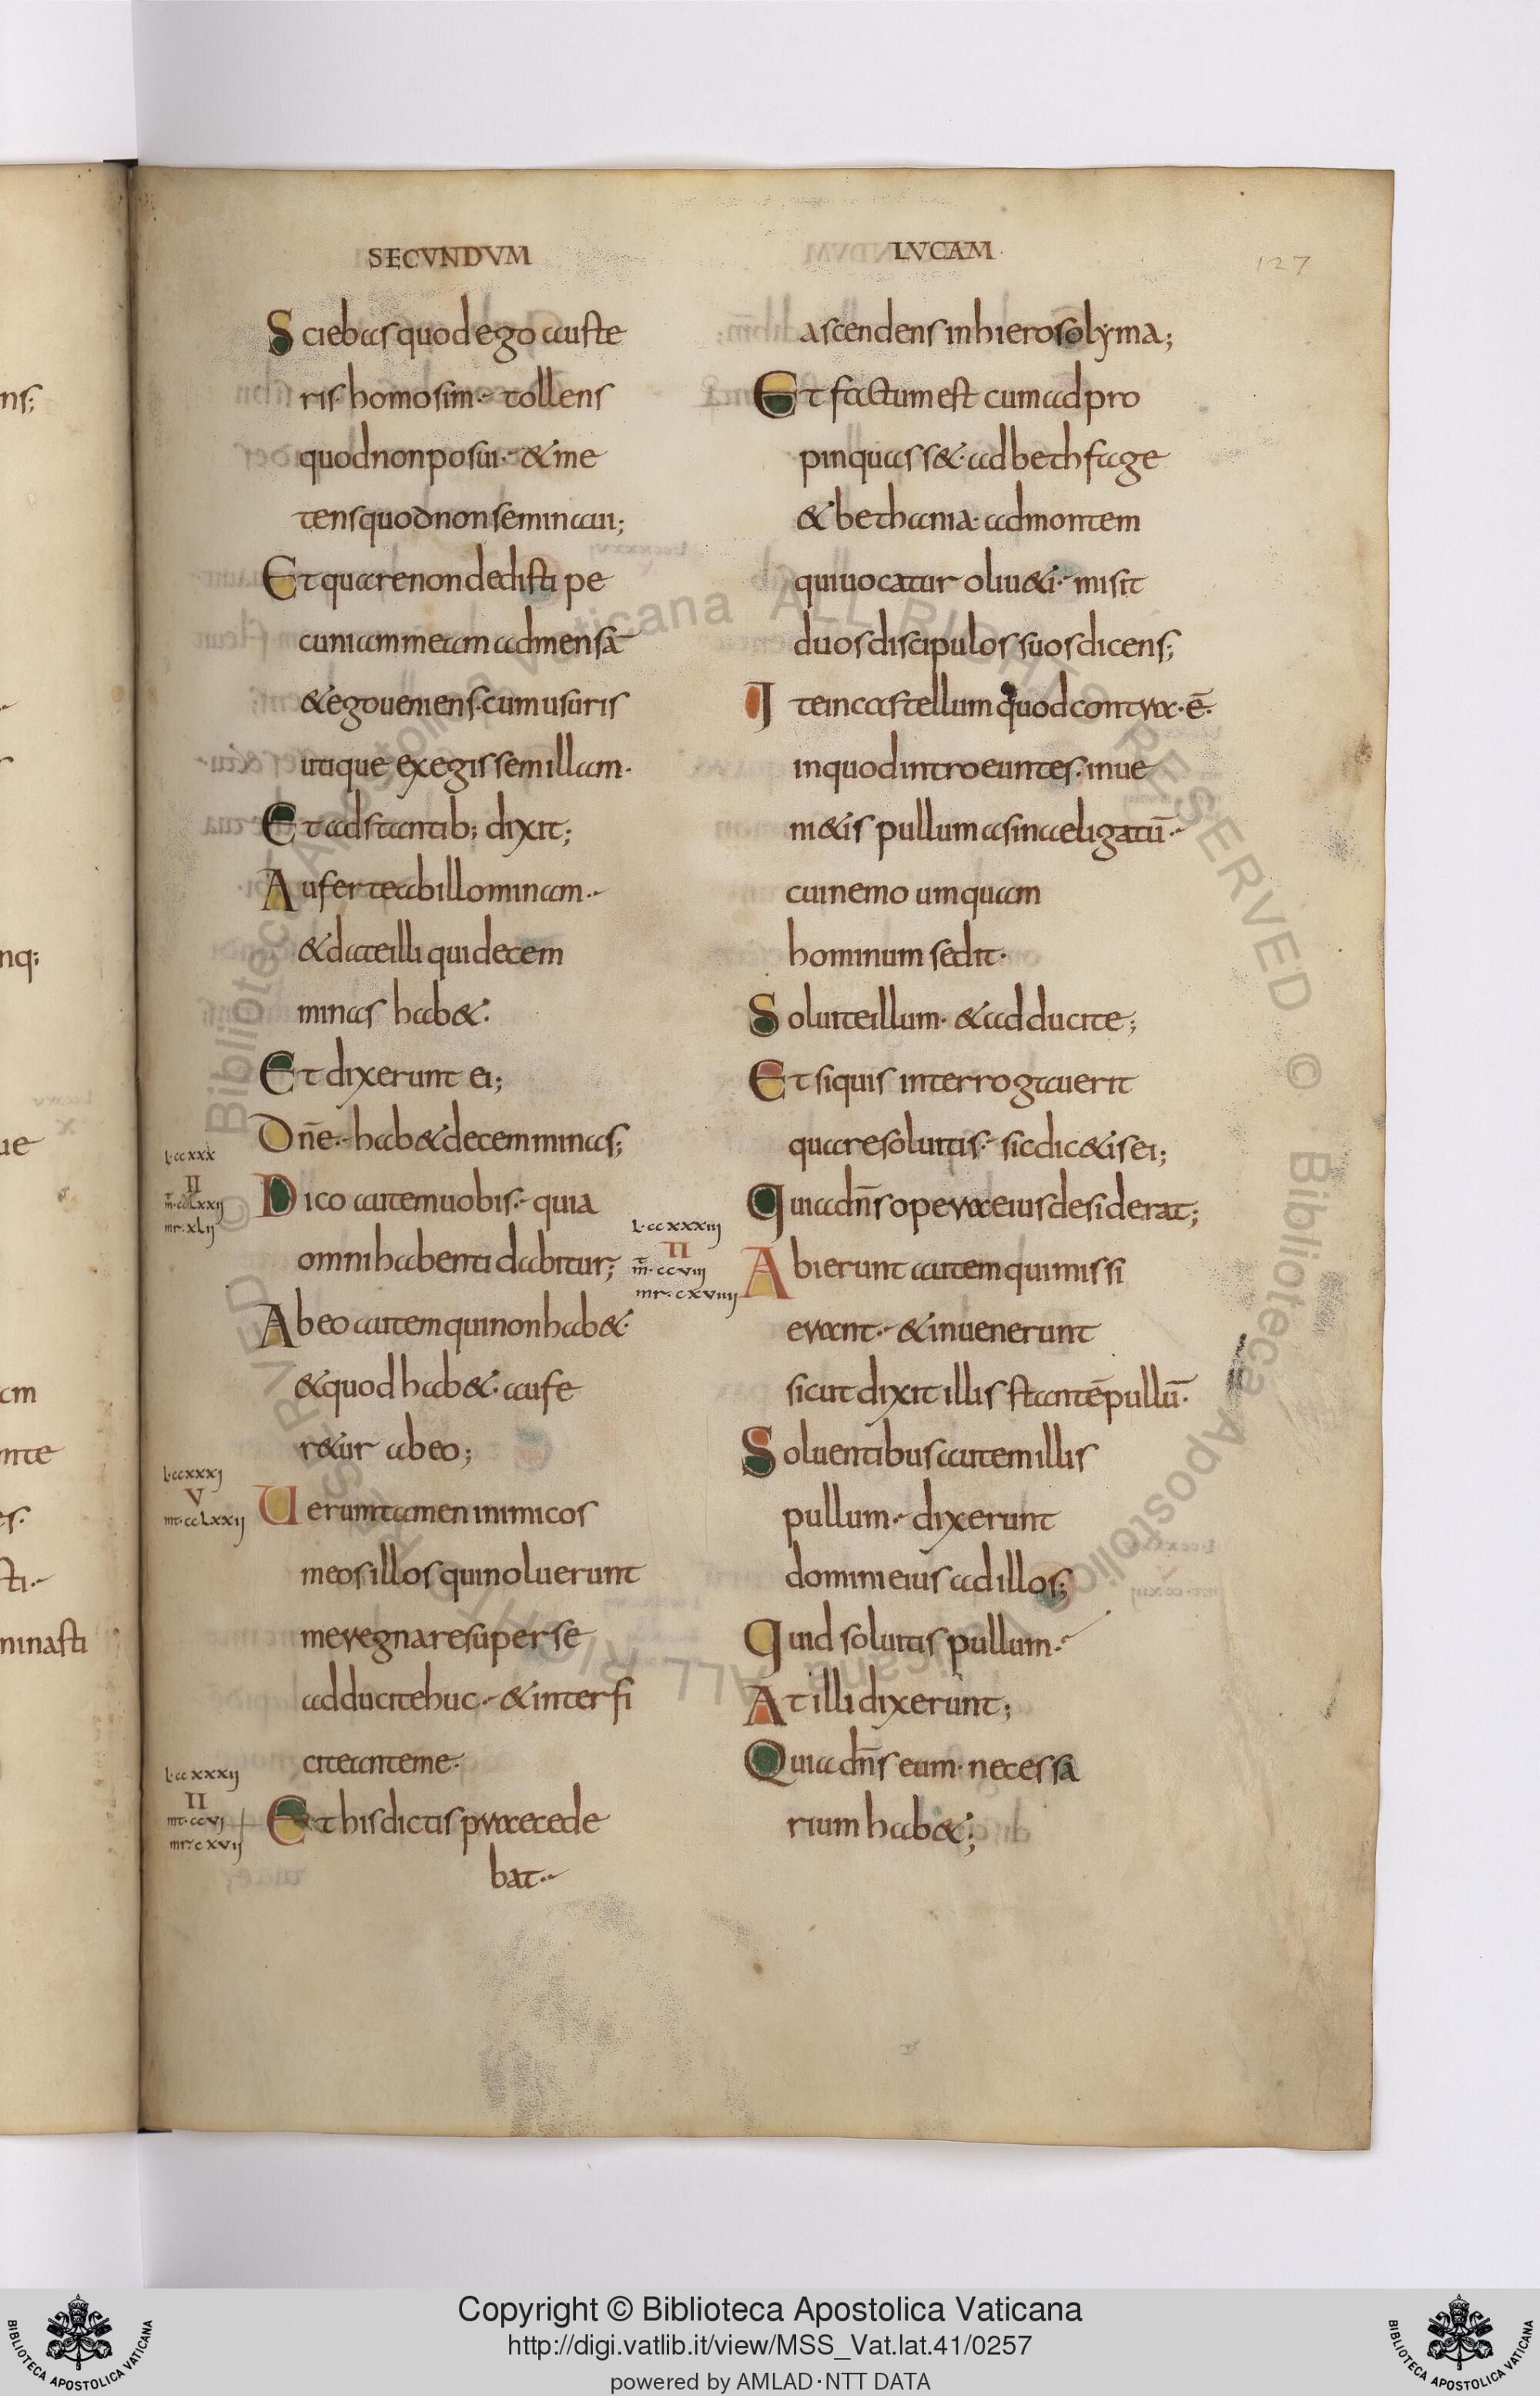 SECVNDVM
Sciebas quod ego auste
ris homo sim· tollens
quod non posui· & me
tens quod non seminaui;
Et quare non dedisti pe
cuniam meam ad mensā
& ego ueniens· cum usuris
utique exegissem illam·
Et adstantib; dixit;
Auferte ab illo minam·
& date illi qui decem
minas hab&·
Et dixerunt ei;
Dn̄e· hab& decem minas;
l·ccxxx
II
m̄·cclxxij
mr·xlij
Dico autem uobis· quia
omni habenti dabitur;
Ab eo autem qui non hab&·
& quod hab&· aufe
r&ur ab eo;
l·ccxxxj
V
mt·cclxxij
Uerumtamen inimicos
meos illos qui noluerunt
me regnare super se
adducite huc· & interfi
cite ante me·
l·ccxxxij
II
mt·ccvj
mr·cxvij
Et his dictis praecede
bat·
LVCAM
127
ascendens in hierosolyma;
Et factum est cum adpro
pinquass&· ad bethfage
& bethania· ad montem
qui uocatur oliu&i· misit
duos discipulos suos dicens;
Ite in castellum quod contra· ē·
in quod introeuntes· inue
ni&is pullum asinae ligatū·
cui nemo umquam
hominum sedit·
Soluite illum· & adducite;
Et si quis interrogauerit
quare soluitis· sic dic&is ei;
Quia dn̄s opera eius desiderat;
l·ccxxxiij
II
m̄·ccviij
mr·cxviiij
Abierunt autem qui missi
erant· & inuenerunt
sicut dixit illis stantē pullū·
Soluentibus autem illis
pullum· dixerunt
domini eius ad illos;
Quid soluitis pullum·
At illi dixerunt;
Quia dn̄s eum· necessa
rium hab&;
ns;
nq;
ue
am
nte
es·
sti·
minasti
© Biblioteca Apostolica Vaticana ALL RIGHTS RESERVED © Biblioteca Apostolica Vaticana ALL RIGHTS RESERVED
BIBLIOTECA APOSTOLICA VATICANA
Copyright © Biblioteca Apostolica Vaticana
http://digi.vatlib.it/view/MSS_Vat.lat.41/0257
powered by AMLAD·NTT DATA
BIBLIOTECA APOSTOLICA VATICANA